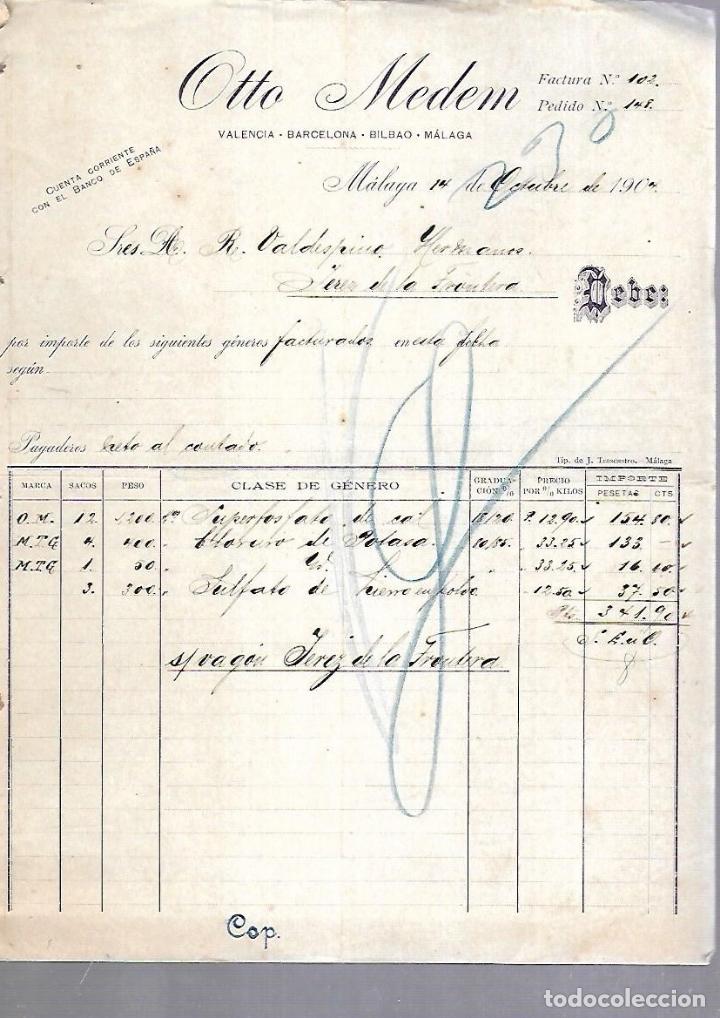 Otto Medem
Factura N.º 102.
Pedido N.º 148.
VALENCIA · BARCELONA · BILBAO · MÁLAGA
CUENTA CORRIENTE
CON EL BANCO DE ESPAÑA
Málaga 14 de Octubre de 1904
Sres. A. R. Valdespino Hermanos.
Jerez de la Frontera
Debe:
por importe de los siguientes géneros facturados en esta fecha
según
Pagaderos neto al contado.
Tip. de J. Trascastro. - Málaga
MARCA SACOS PESO CLASE DE GÉNERO GRADUACIÓN º/o PRECIO POR º/o KILOS IMPORTE PESETAS CTS
O.M. 12 1200 Superfosfato de cal 18/20 P. 12.90 154.80
M.T.G 4. 400 Cloruro de Potasa 80/85 33.25 133 -
M.T.G 1. 50 Id. 33.25 16.60
3. 300 Sulfato de hierro en polvo 12.50 37.50
Pts. 341.90
S. E. u O.
s/vagón Jerez de la Frontera
Cop.
todocoleccion